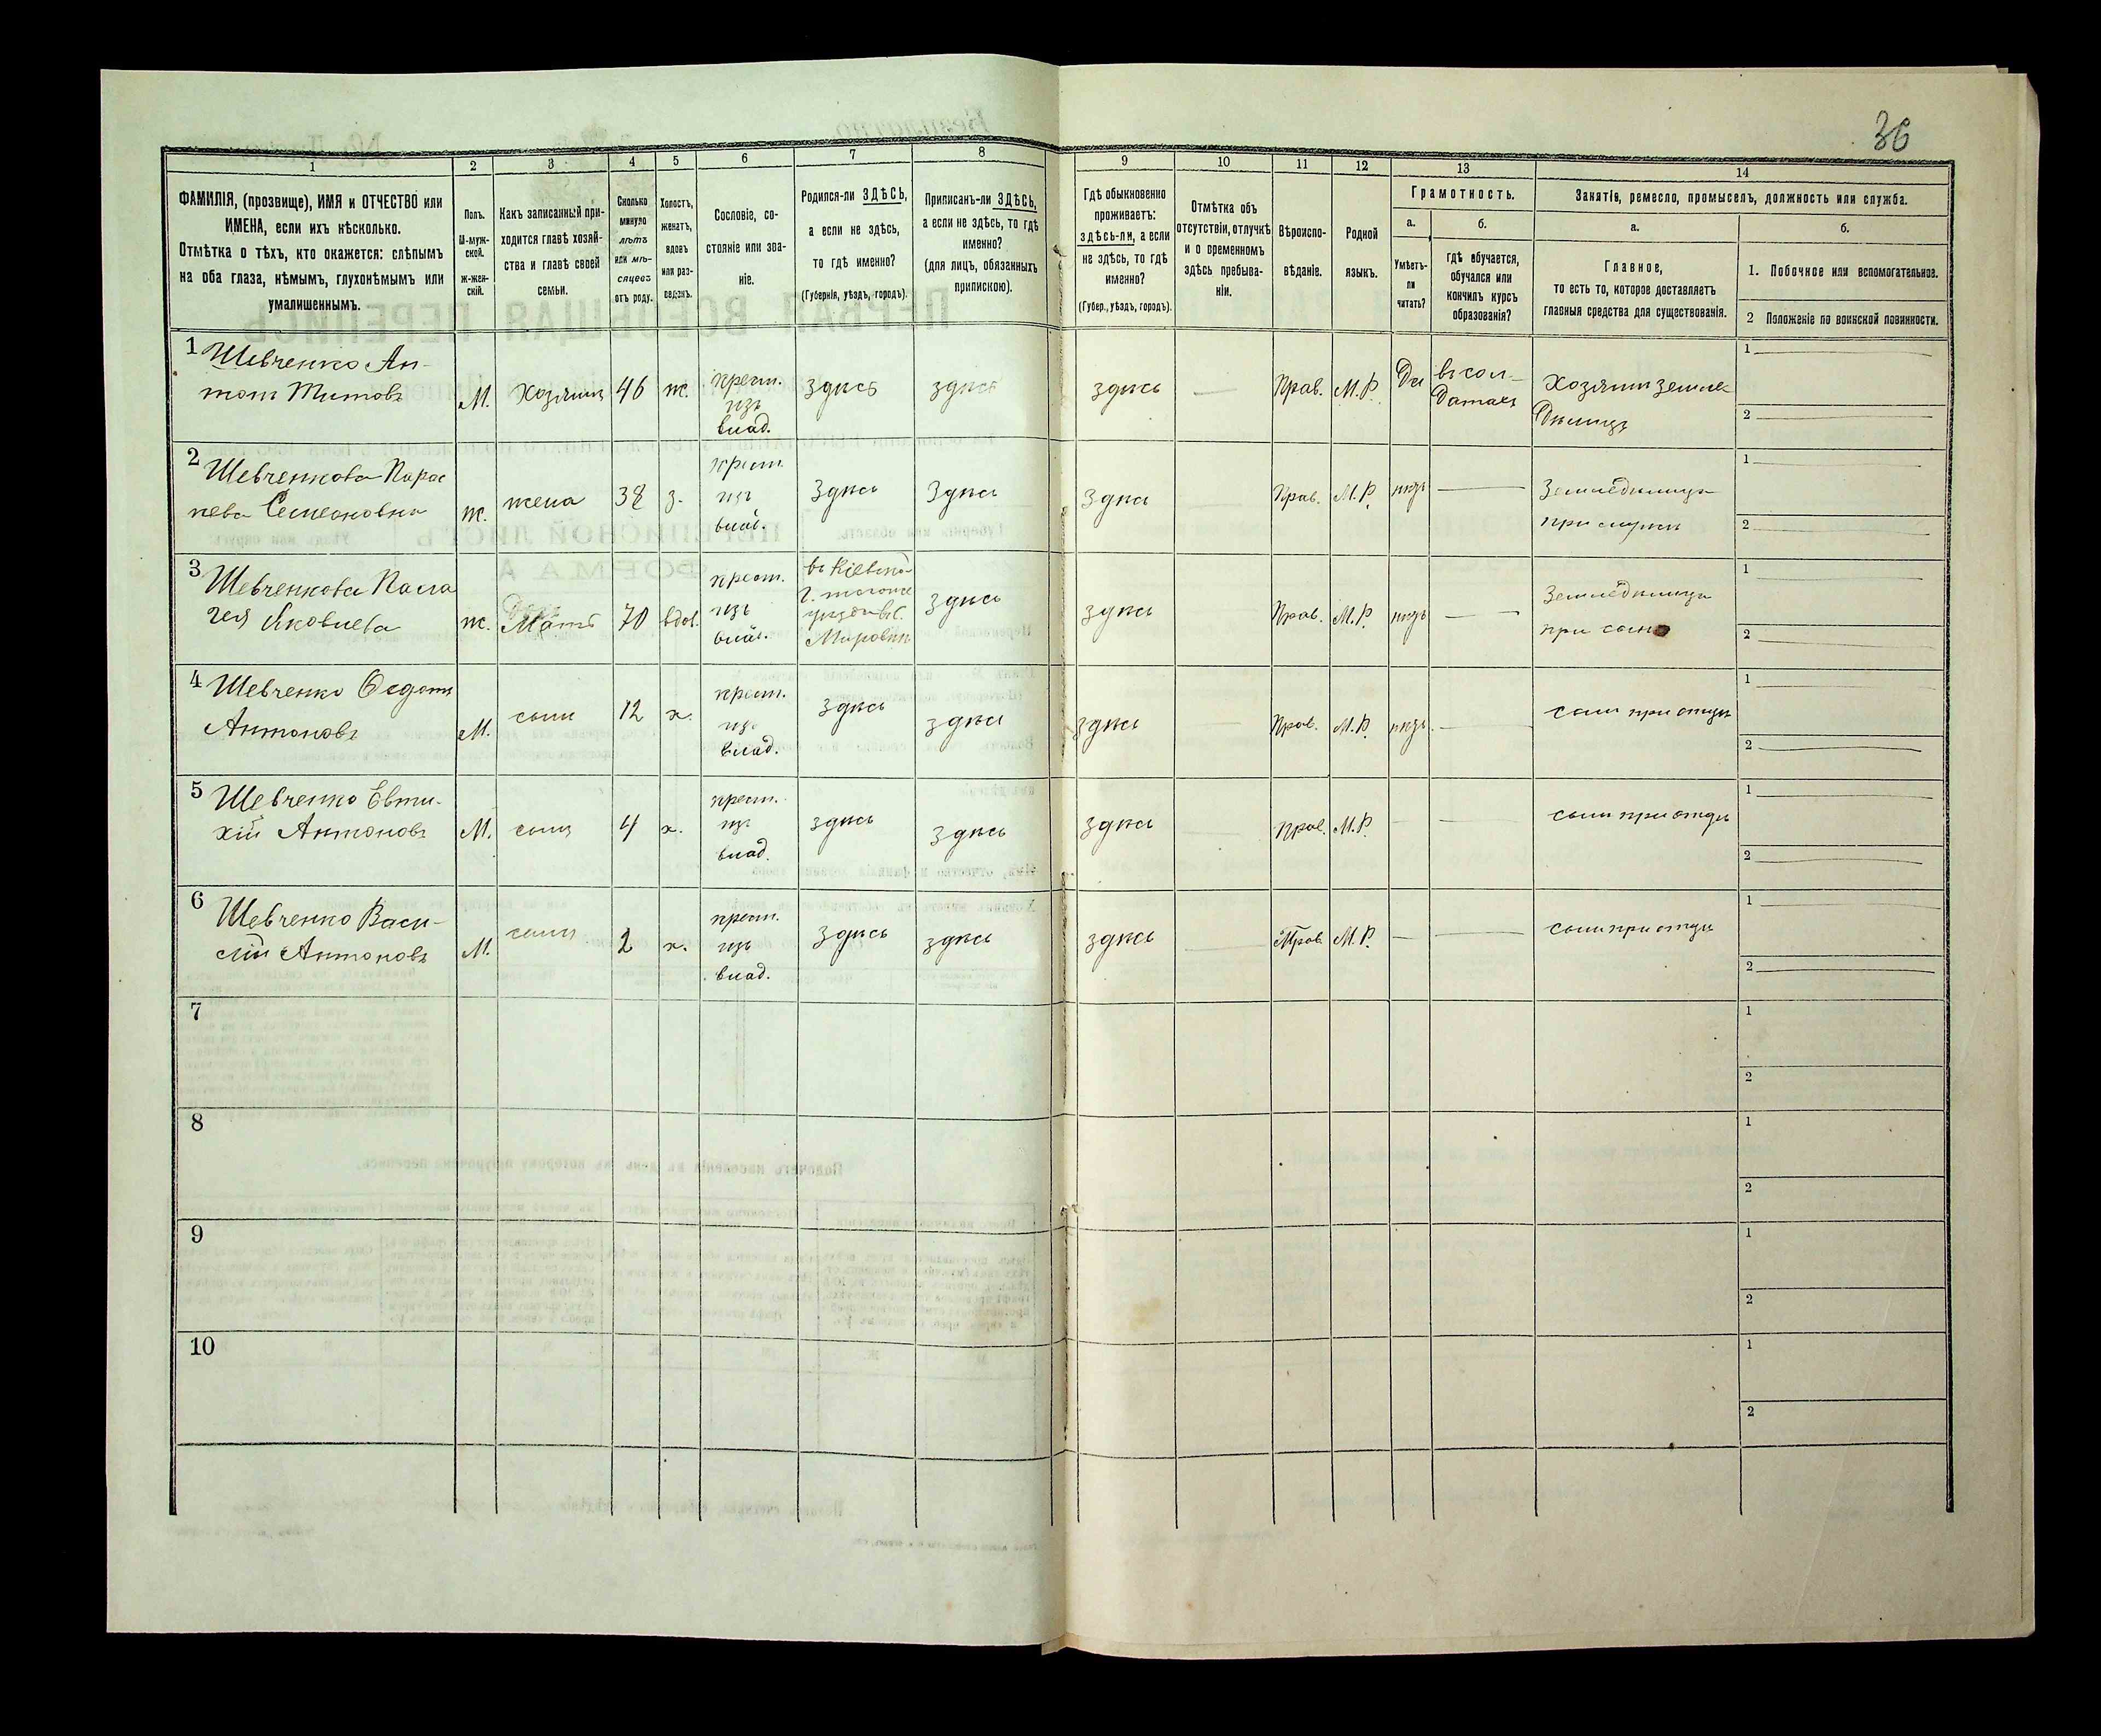 36
1
2
3
4
5
6
7
8
9
10
11
12
13
14
ФАМИЛІЯ, (прозвище), ИМЯ и ОТЧЕСТВО или
ИМЕНА, если ихъ нѣсколько.
Отмѣтка о тѣхъ, кто окажется: слѣпымъ
на оба глаза, нѣмымъ, глухонѣмымъ или
умалишеннымъ.
Полъ.
М-муж-
ской.
Ж-жен-
скій.
Какъ записанный при-
ходится главѣ хозяй-
ства и главѣ своей
семьи.
Сколько
минуло
лѣтъ
или мѣ-
сяцевъ
отъ роду.
Холостъ,
женатъ,
вдовъ
или раз-
веденъ.
Сословіе, со-
стояніе или зва-
ніе.
Родился-ли ЗДѢСЬ,
а если не здѣсь,
то гдѣ именно?
(Губернія, уѣздъ, городъ).
Приписанъ-ли ЗДѢСЬ,
а если не здѣсь, то гдѣ
именно?
(для лицъ, обязанныхъ
припискою).
Гдѣ обыкновенно
проживаетъ:
здѣсь-ли, а если
не здѣсь, то гдѣ
именно?
(Губер., уѣздъ, городъ).
Отмѣтка объ
отсутствіи, отлучкѣ
и о временномъ
здѣсь пребыва-
ніи.
Вѣроиспо-
вѣданіе.
Родной
языкъ.
Грамотность.
а.
Умѣетъ-
ли
читать?
б.
гдѣ обучается,
обучался или
кончилъ курсъ
образованія?
Занятіе, ремесло, промыселъ, должность или служба.
а.
Главное,
то есть то, которое доставляетъ
главныя средства для существованія.
б.
1. Побочное или вспомогательное.
2 Положеніе по воинской повинности.
1 Шевченко Ан-
тонъ Титовъ
М.
Хозяинъ
46
ж.
крест.
изъ
влад.
здѣсь
здѣсь
здѣсь
Прав.
М.Р.
Да
въ сол-
датахъ
Хозяинъ земле
дѣлецъ
1
2
2 Шевченкова Парас
кева Семеоновна
ж.
жена
38
з.
крест.
изъ
влад.
здѣсь
здѣсь
здѣсь
Прав.
М.Р.
нѣтъ
Земледѣлица
при мужѣ
1
2
3 Шевченкова Пала
гея Яковлева
ж.
Мать
70
вдов.
крест.
изъ
влад.
въ Кіевской
г.
Мировкѣ
здѣсь
здѣсь
Прав.
М.Р.
нѣтъ
Земледѣлица
при сынѣ
1
2
4 Шевченко Ѳедотъ
Антоновъ
М.
сынъ
12
х.
крест.
изъ
влад.
здѣсь
здѣсь
здѣсь
Прав.
М.Р.
нѣтъ
сынъ при отцѣ
1
2
5 Шевченко Евти-
хій Антоновъ
М.
сынъ
4
х.
крест.
изъ
влад.
здѣсь
здѣсь
здѣсь
Прав.
М.Р.
сынъ при отцѣ
1
2
6 Шевченко Васи-
лій Антоновъ
М.
сынъ
2
х.
крест.
изъ
влад.
здѣсь
здѣсь
здѣсь
Прав.
М.Р.
сынъ при отцѣ
1
2
7
1
2
8
1
2
9
1
2
10
1
2